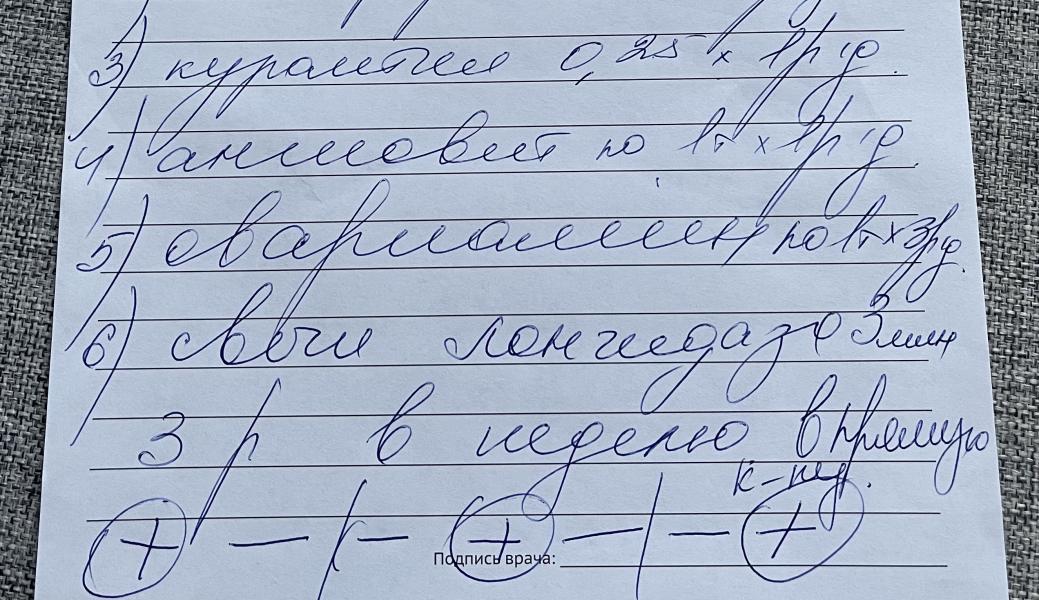 3) курантил 0,25 х 1 р/д.
4) ангиовит по 1т х 1 р/д.
5) овариамин по 1т х 3 р/д.
6) свечи лонгидаза 3 млн
3 р в неделю в прямую
к-ку.
+ — / — + — / — +
Подпись врача: